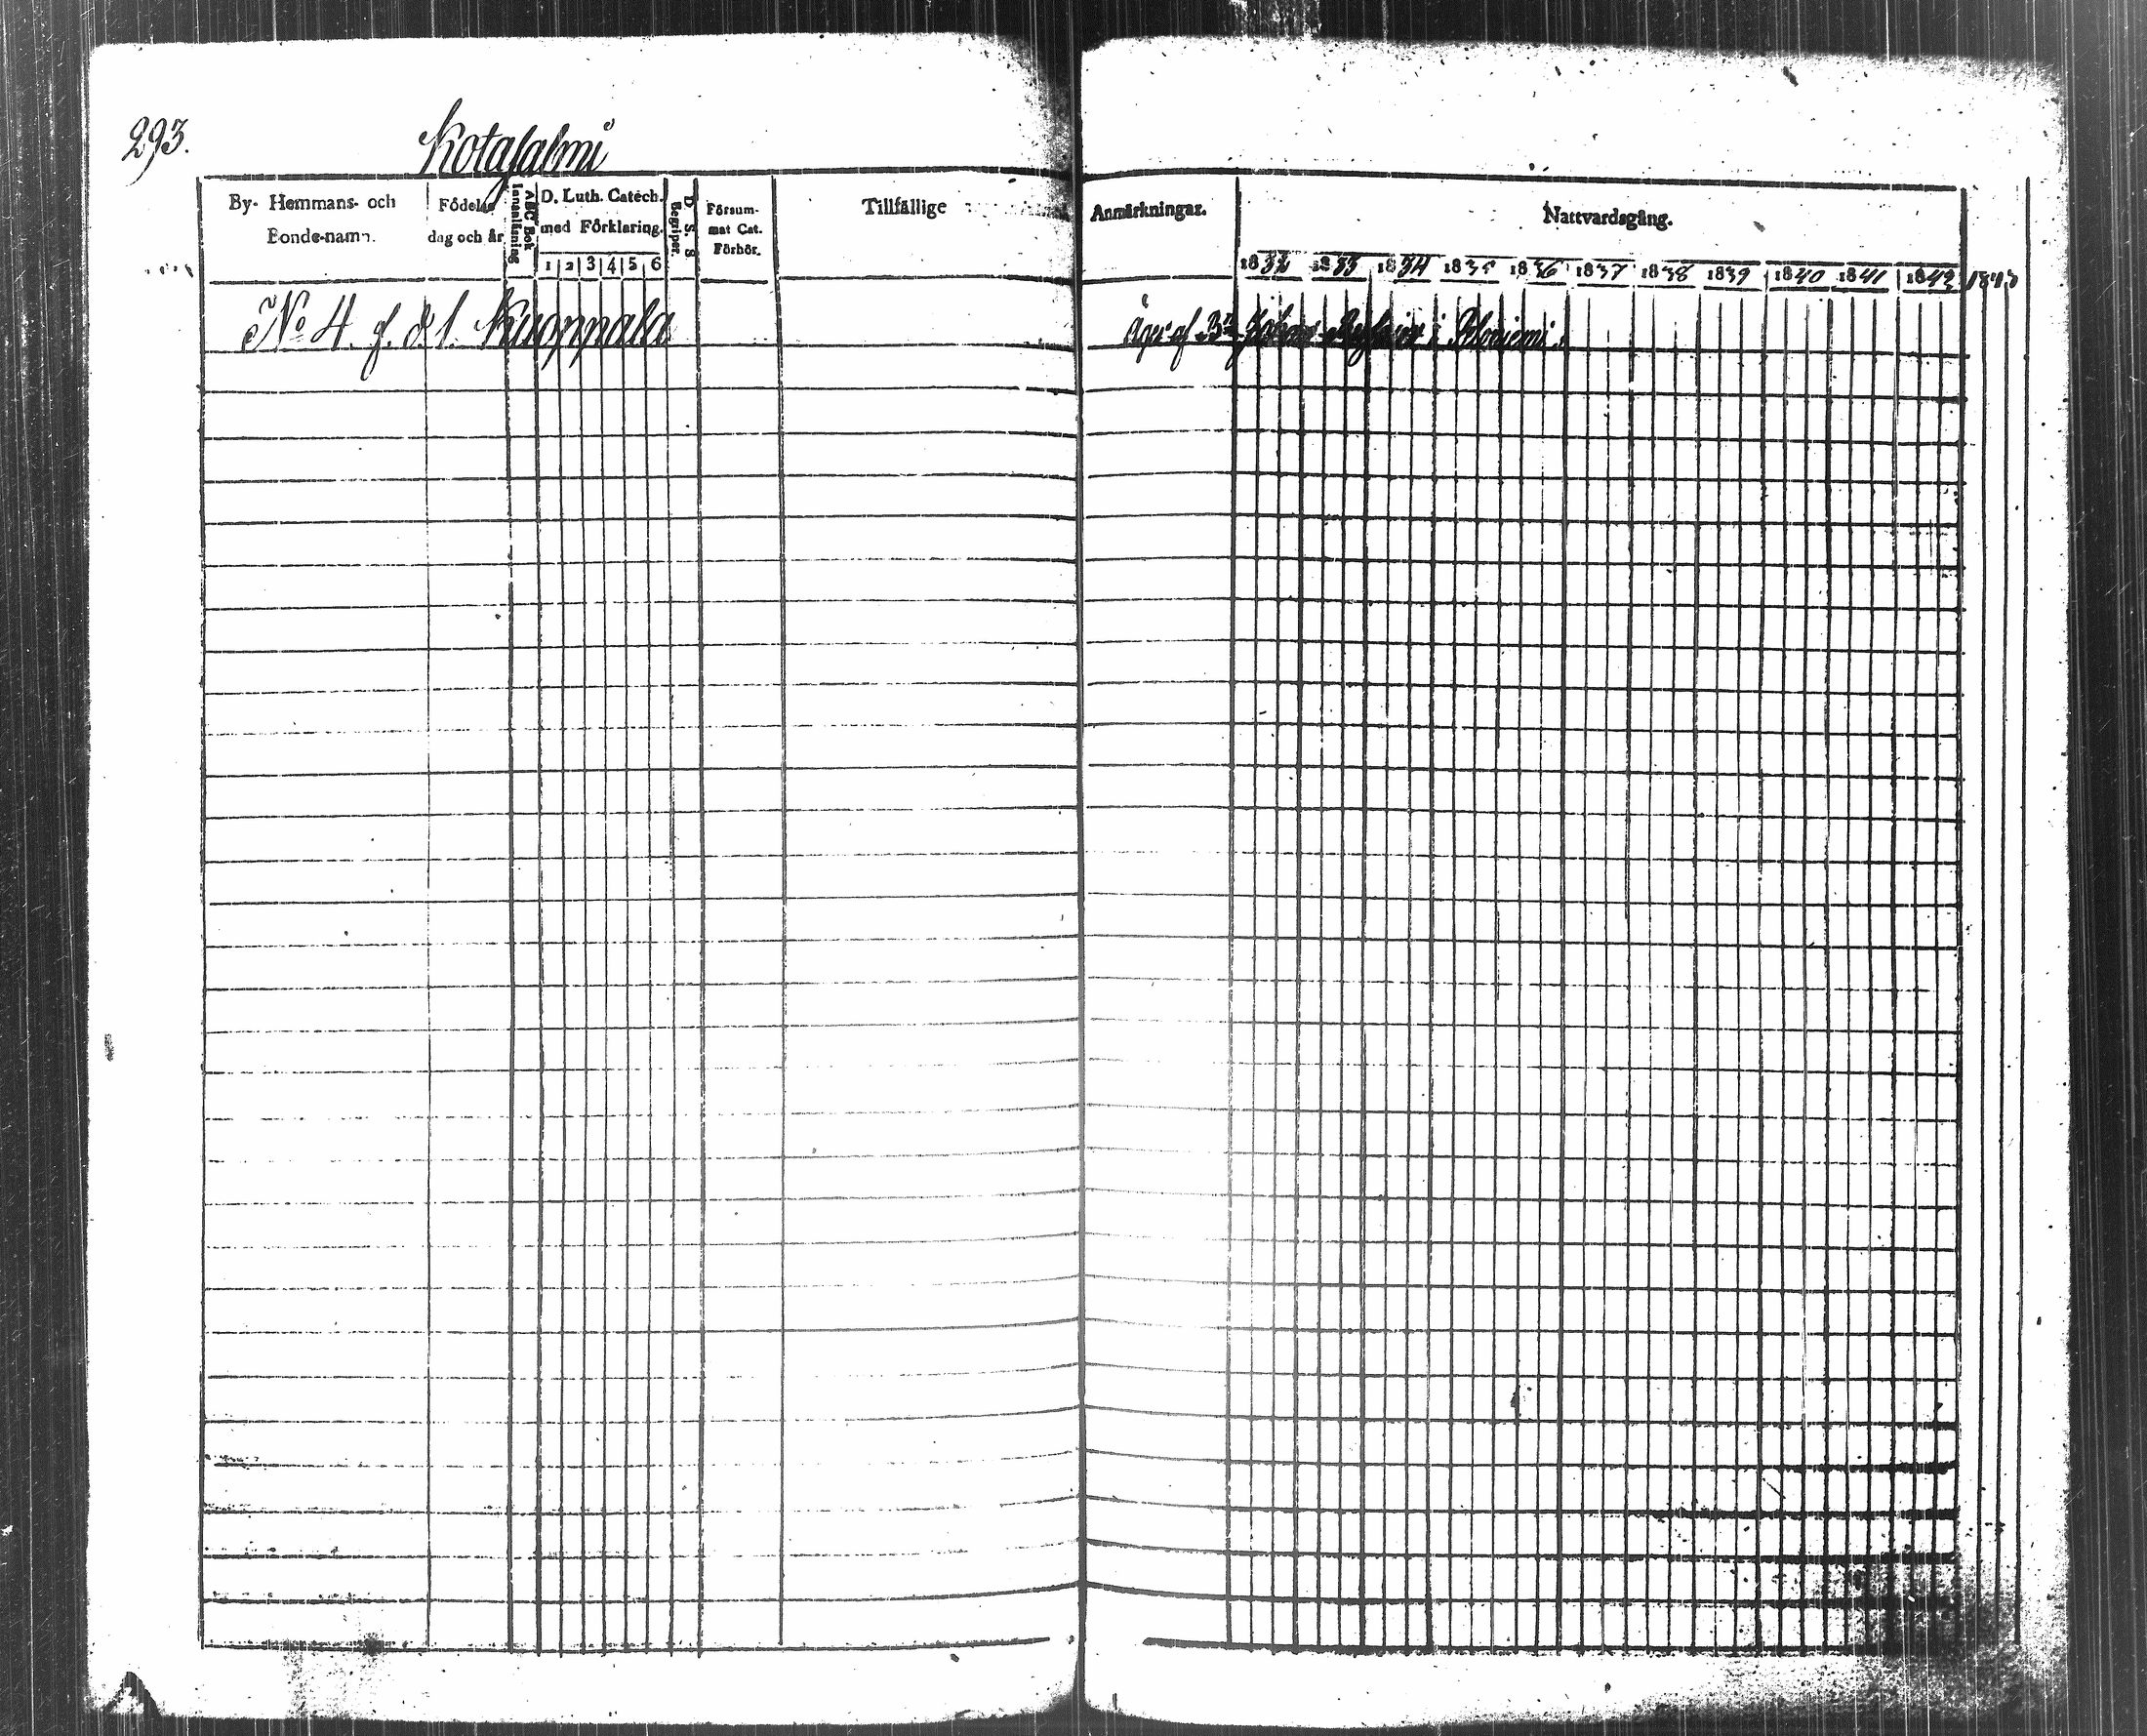 293.
Kotasalmi
By- Hemmans- och
Bonde-namn.
Födelse
dag och år
ABC Bok
Innanläsning
D. Luth. Catech.
med Förklaring.
1 2 3 4 5 6
D. S. S
Begriper.
Försum-
mat Cat.
Förhör.
Tillfällige
Anmärkningar.
Nattvardsgång.
1832 1833 1834 1835 1836 1837 1838 1839 1840 1841 1842 1843
No 4. g. & 1. Kuoppala
Äges af Bn Johan i